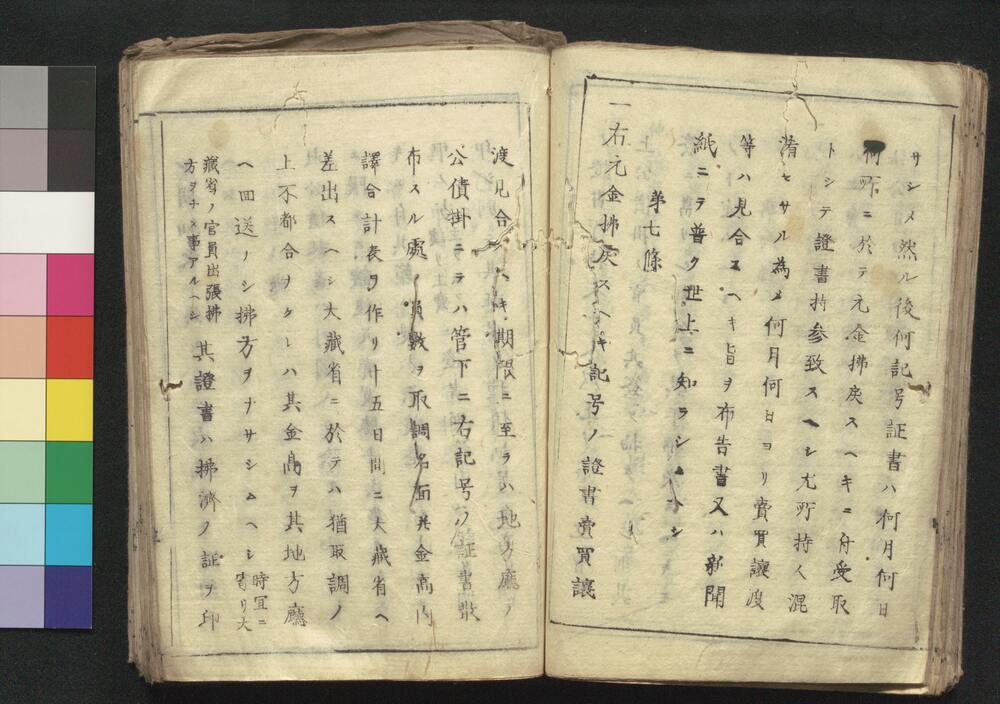 サシメ然ル後何記号証書ハ何月何日
何所ニ於テ元金拂戻スヘキニ付受取
トシテ證書持参致スヘシ尤所持人混
淆セサル為メ何月何日ヨリ賣買讓渡
等ハ見合スヘキ旨ヲ布告書又ハ新聞
紙ニテ普ク世上ニ知ラシムヘシ
第七條
一右元金拂戻スヘキ記号ノ證書賣買讓
渡見合スヘキ期限ニ至ラハ地方廳テ
公債掛ニテハ管下ニ右記号ノ証書散
布スル處ノ員数ヲ取調名面其金高内
譯合計表ヲ作リ十五日間ニ大藏省ヘ
差出スヘシ大藏省ニ於テハ猶取調ノ
上不都合ヲケレハ其金高ヲ其地方廳
ヘ回送ノシ拂方ヲナサシムヘシ時宜ニ寄リ大
藏省ノ官員出張拂
方ヲナス事アルヘシ其證書ハ拂濟ノ証ヲ印